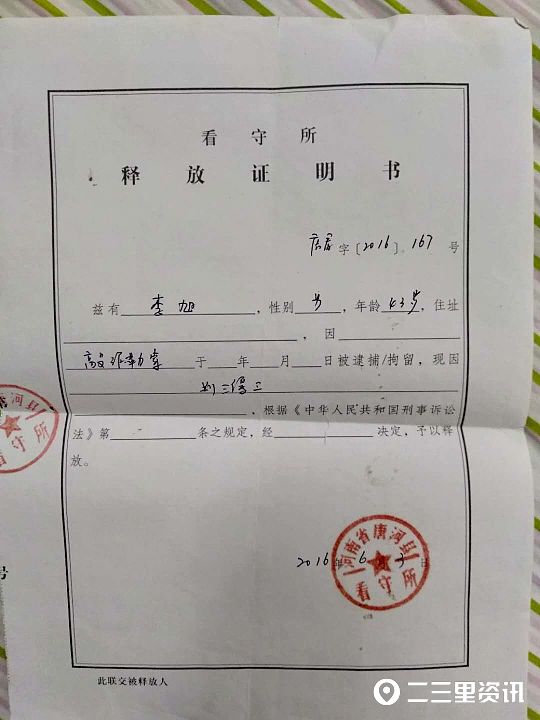 看守所
释放证明书
字〔2016〕167号
兹有李旭，性别男，年龄43岁，住址
，因
敲诈勒索于年月日被逮捕/拘留，现因
，根据《中华人民共和国刑事诉讼
法》第条之规定，经决定，予以释
放。
2016年6月3日
河南省唐河县
看守所
唐河县
看守所
号
此联交被释放人
二三里资讯